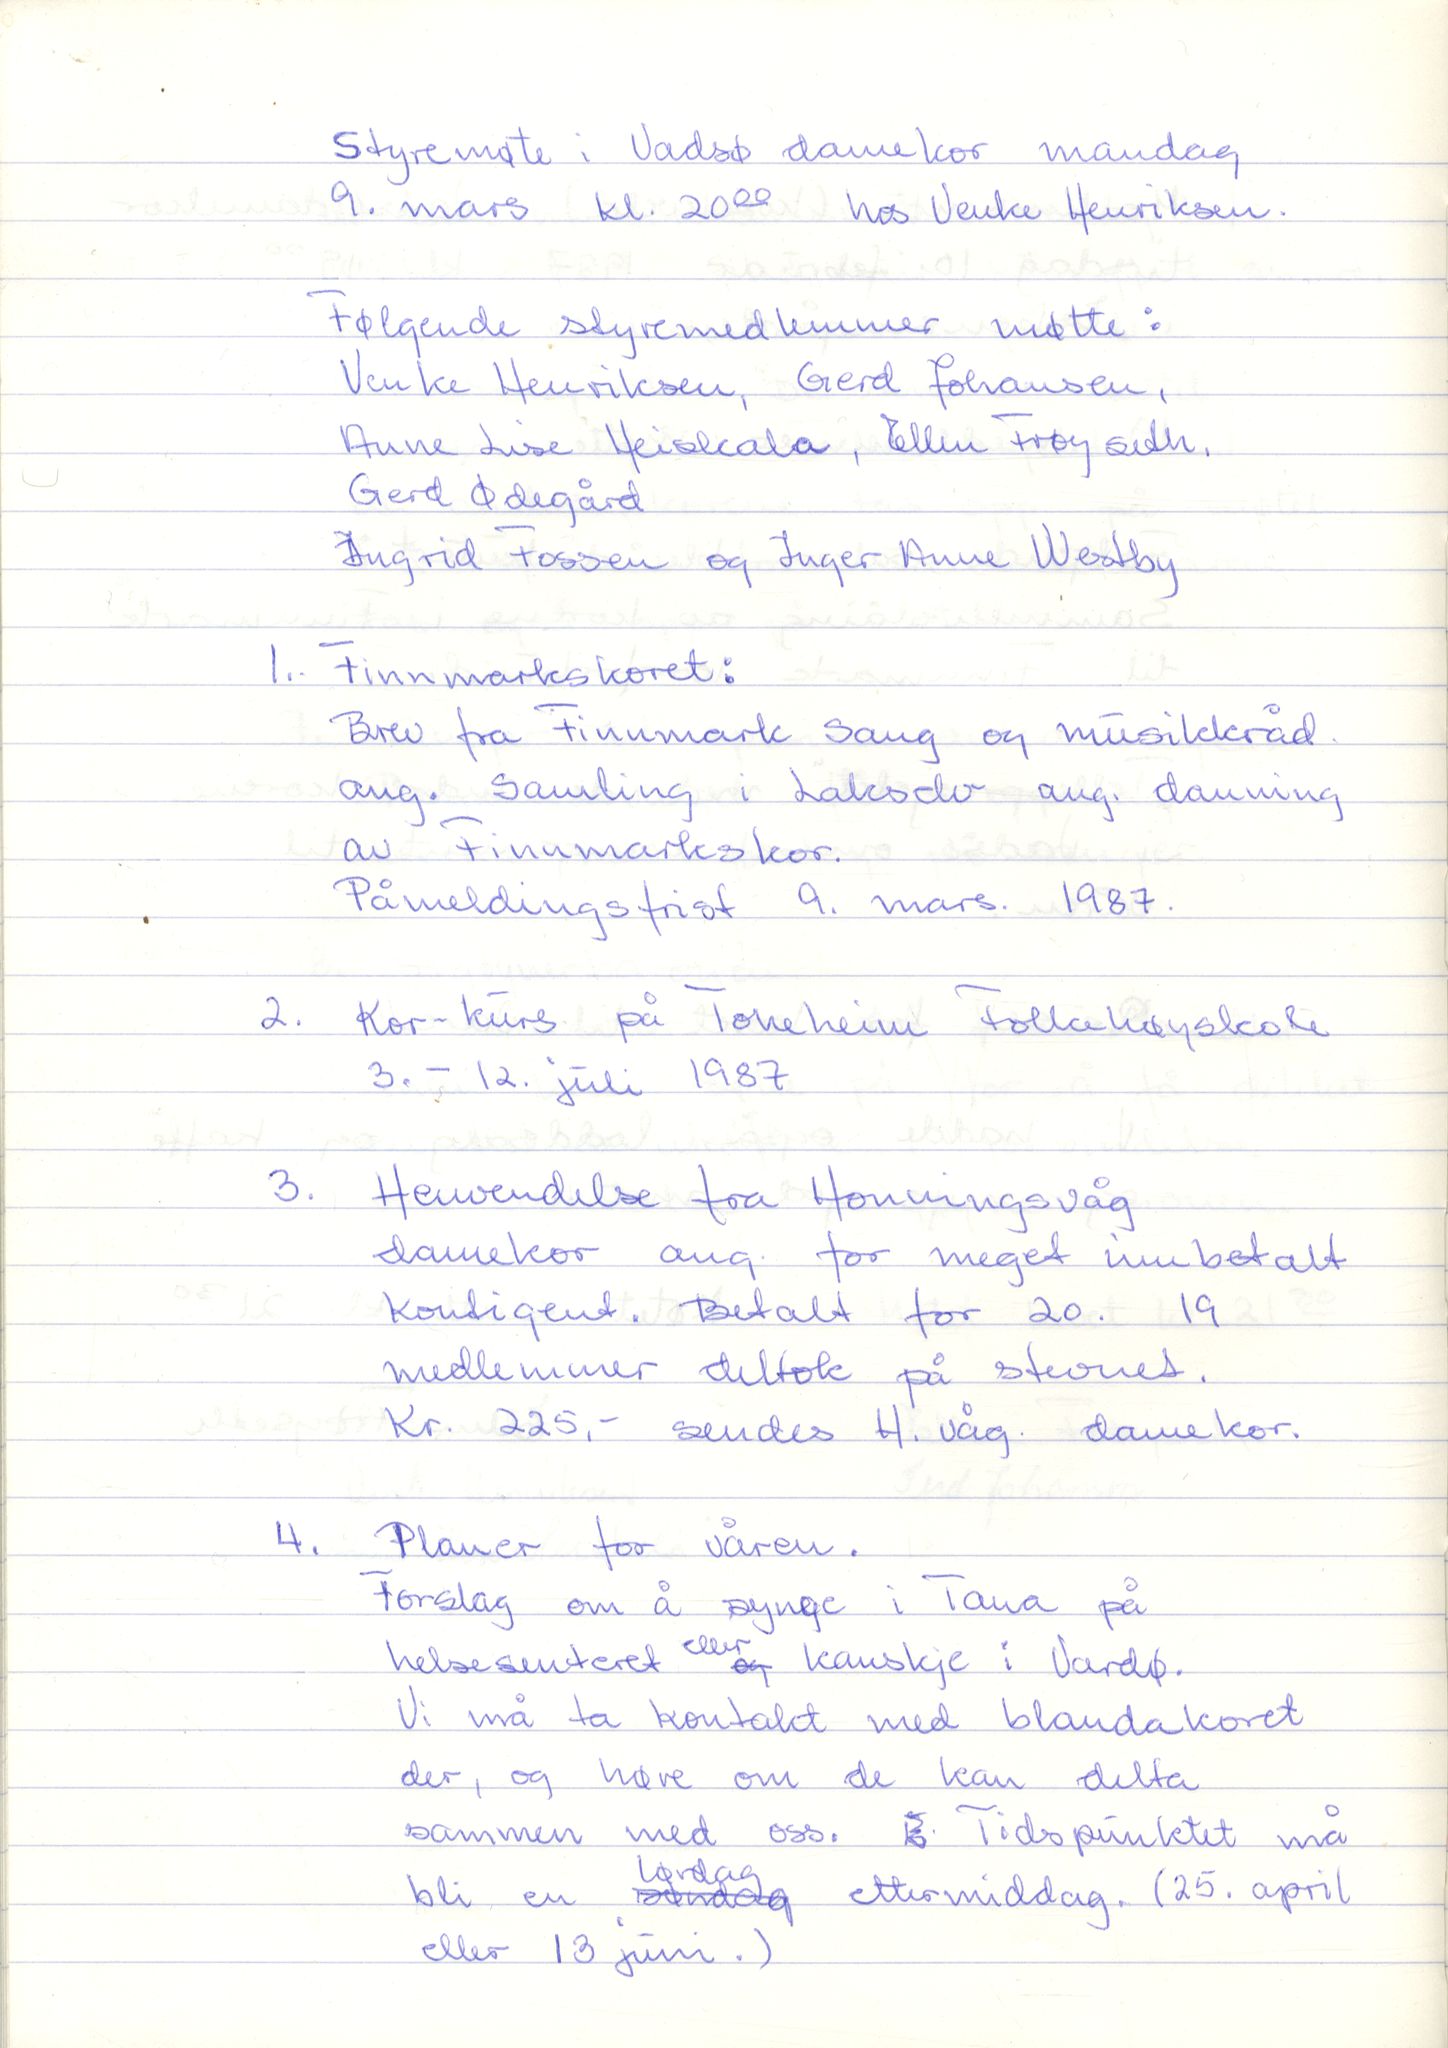 Styremøte i Vadsø damekor mandag
9. mars kl. 20⁰⁰ hos Venke Henriksen.
Følgende styremedlemmer møtte:
Venke Henriksen, Gerd Johansen,
Anne Lise Heiskala, Ellen Frøyseth.
Gerd Ødegård
Ingrid Fossen og Inger Anne Westby
1. Finnmarkskoret:
Brev fra Finnmark Sang og musikkråd.
ang. samling i Lakselv ang. danning
av Finnmarkskor.
Påmeldingsfrist 9. mars. 1987.
2. Kor-kurs på Toneheim Folkehøyskole
3. - 12. juli 1987
3. Henvendelse fra Honningsvåg
damekor ang. for meget innbetalt
kontigent. Betalt for 20. 19
medlemmer deltok på stevnet.
Kr. 225,- sendes H.våg. damekor.
4. Planer for våren.
Forslag om å synge i Tana på
helsesenteret eller og kanskje i Vardø.
Vi må ta kontakt med blandakoret
der, og høre om de kan delta
sammen med oss. Tidspunktet må
bli en lørdag søndag ettermiddag. (25. april
eller 13 juni.)